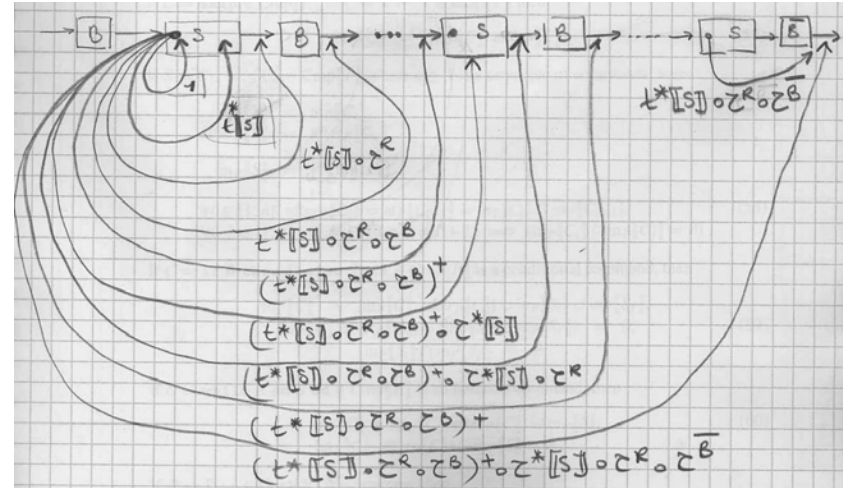 B S B ... S B ...... S B̅
1
t*⟦S⟧
t*⟦S⟧∘τᴿ∘τᴮ̅
t*⟦S⟧∘τᴿ
t*⟦S⟧∘τᴿ∘τᴮ
(t*⟦S⟧∘τᴿ∘τᴮ)⁺
(t*⟦S⟧∘τᴿ∘τᴮ)⁺∘τ*⟦S⟧
(t*⟦S⟧∘τᴿ∘τᴮ)⁺∘τ*⟦S⟧∘τᴿ
(t*⟦S⟧∘τᴿ∘τᴮ)⁺
(t*⟦S⟧∘τᴿ∘τᴮ)⁺∘τ*⟦S⟧∘τᴿ∘τᴮ̅